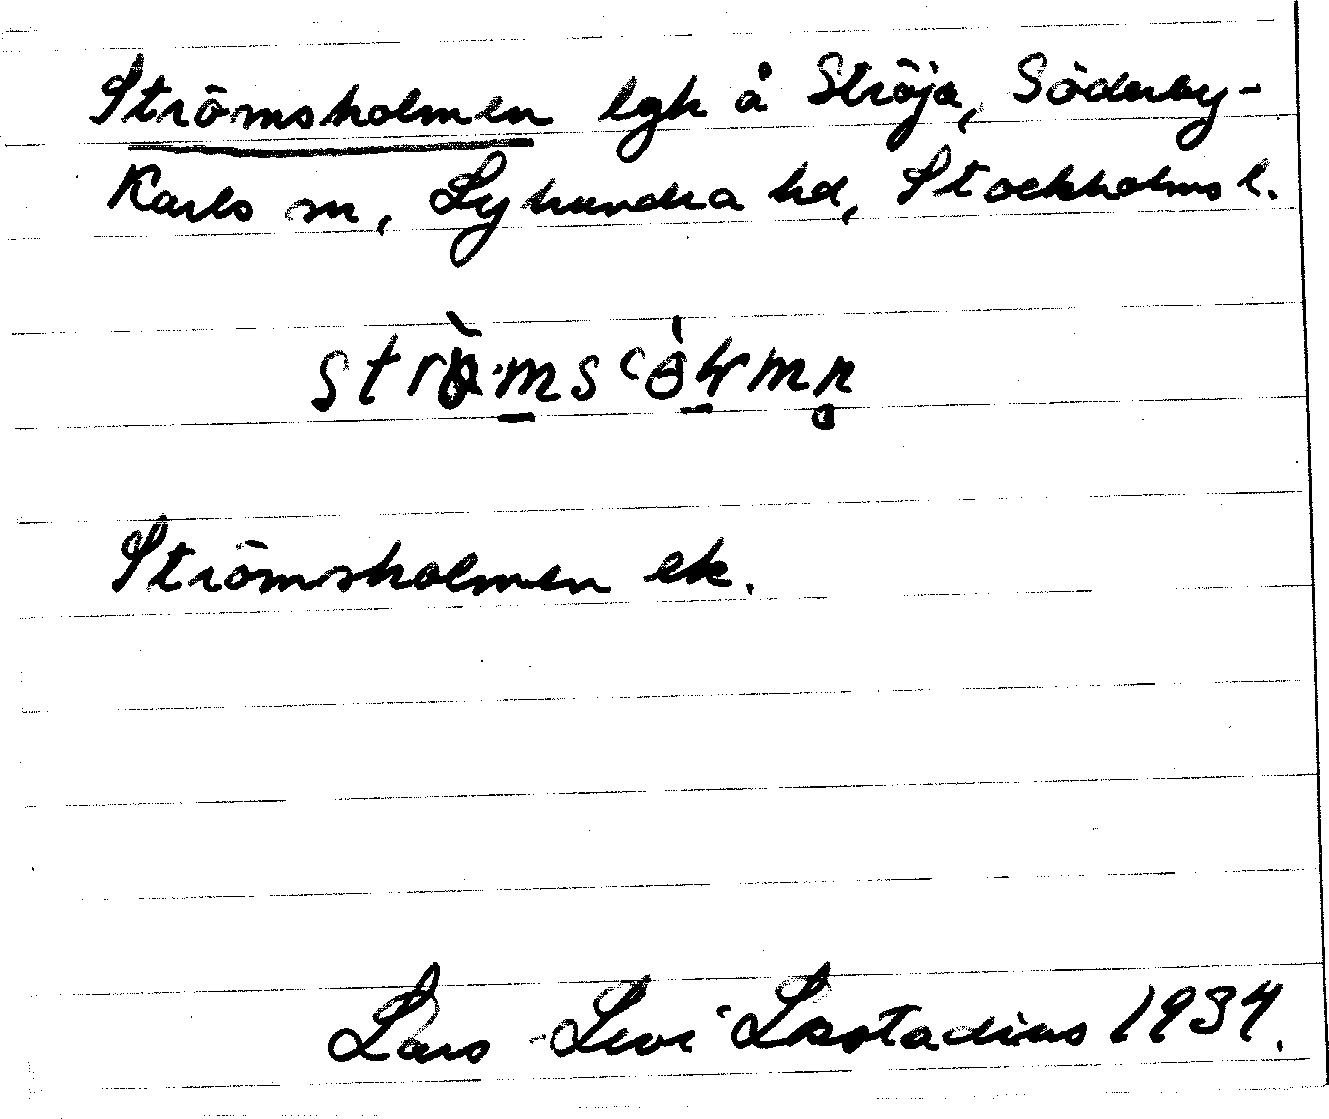 Strömsholmen lgh å Ströja, Söderby-
Karls sn, Lyhundra hd, Stockholms l.
Strömsholmen ek.
Lars-Levi Læstadius 1934.